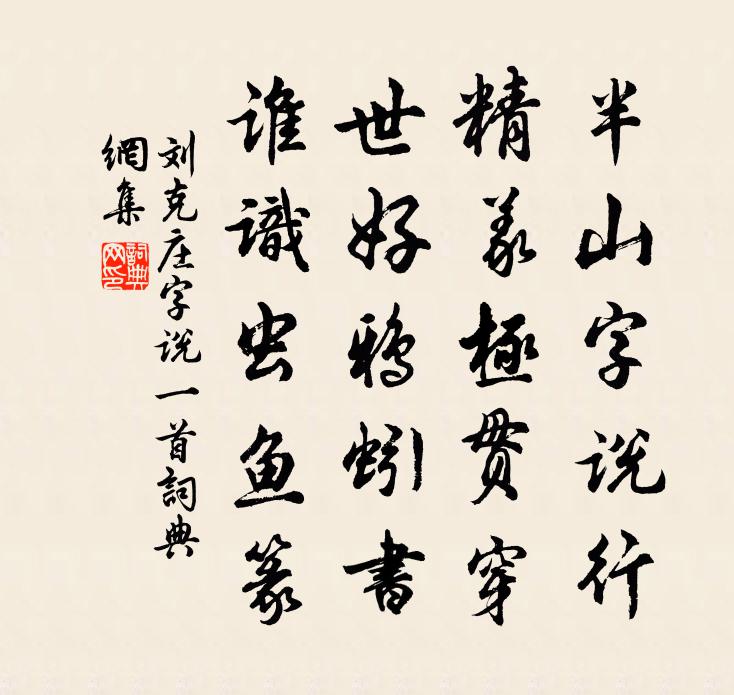 半山字说行
精义極贯穿
世好鸦蚓書
谁識虫鱼篆
刘克庄字说一首詞典
網集
詞典網印